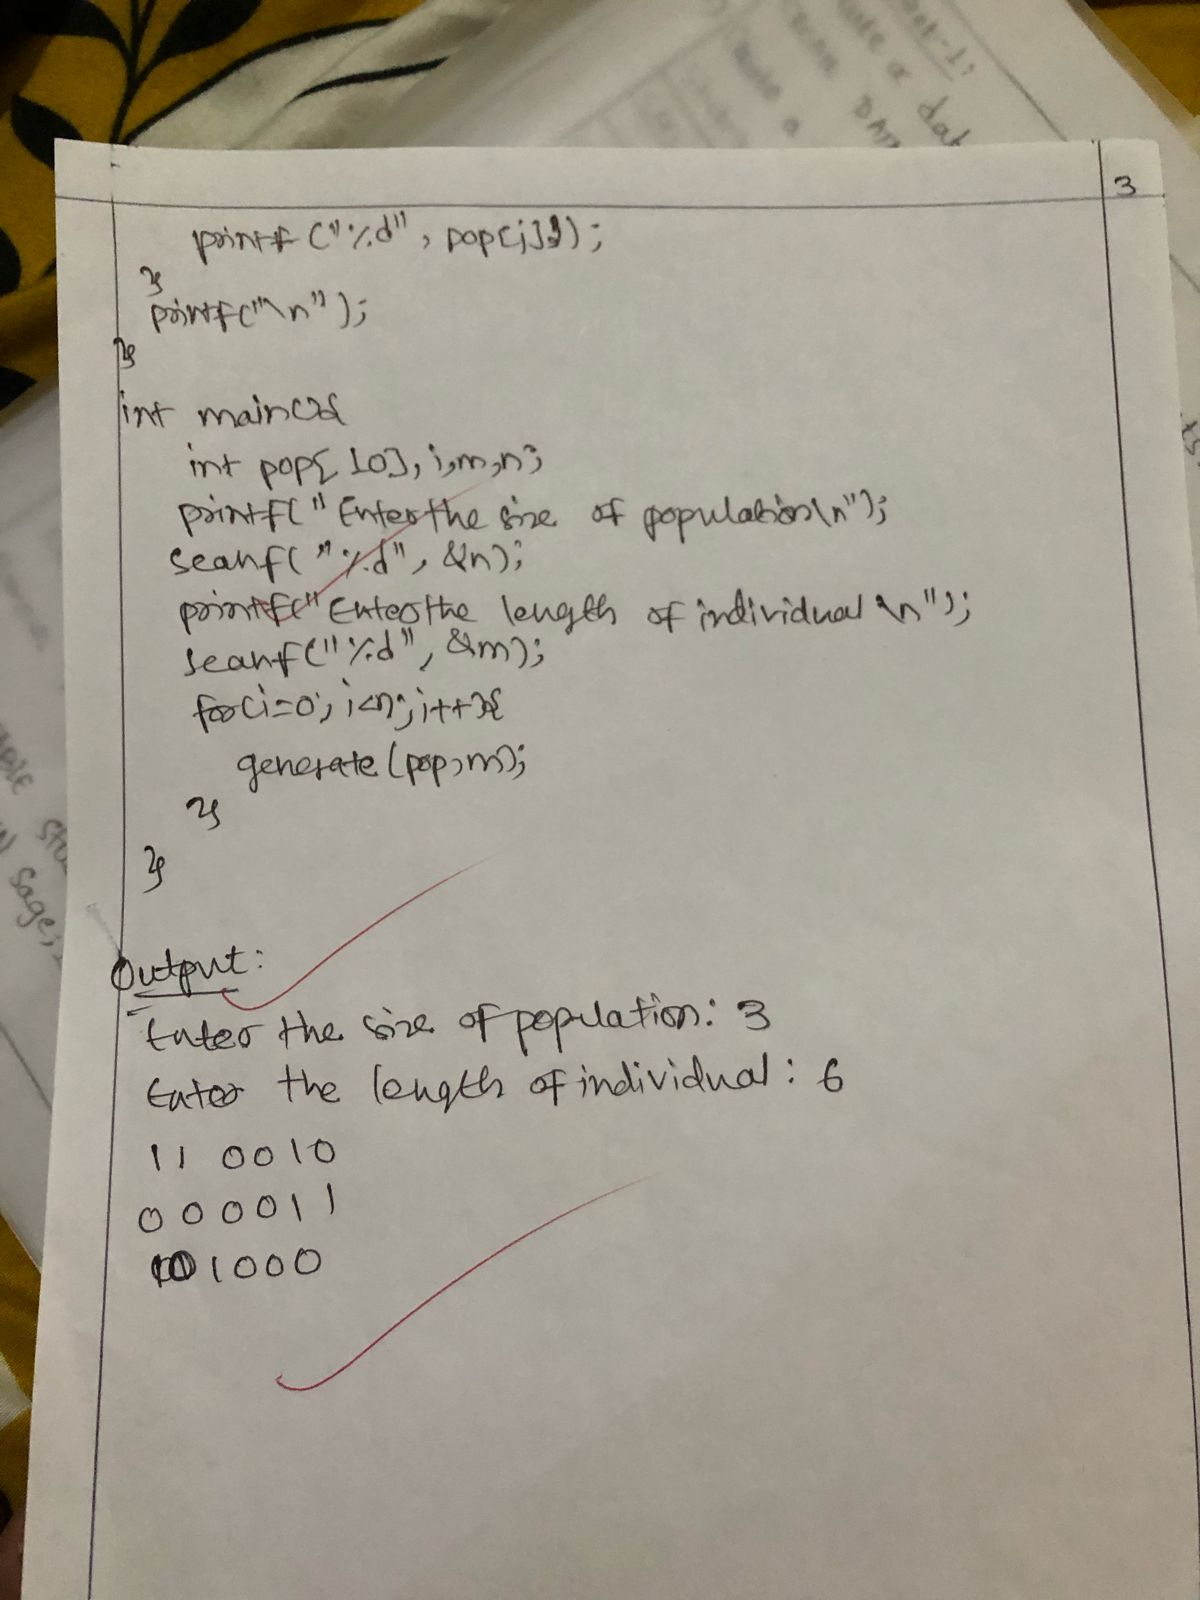 3
printf ("%d", pop[j]);
}
printf("\n");
}
int main(){
int pop[10], i,m,n;
printf(" Enter the size of population\n");
scanf("%d", &n);
printf("Enter the length of individual \n");
scanf("%d", &m);
for(i=0; i<n; i++){
generate(pop,m);
}
}
Output:
Enter the size of population: 3
Enter the length of individual: 6
11 0010
000011
101000